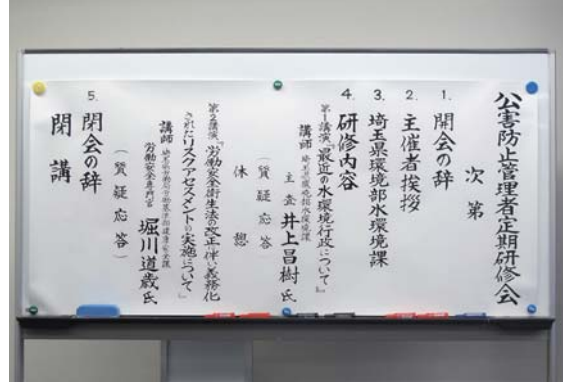 公害防止管理者定期研修会
次第
1. 開会の辞
2. 主催者挨拶
3. 埼玉県環境部水環境課
4. 研修内容
第1講演『最近の水環境行政について』
講師 埼玉県環境部水環境課
主査 井上昌樹氏
(質疑応答)
休憩
第2講演『労働安全衛生法の改正に伴い義務化
されたリスクアセスメントの実施について』
講師 埼玉労働局労働基準部健康安全課
労働安全専門官 堀川道歳氏
(質疑応答)
5. 閉会の辞
閉講